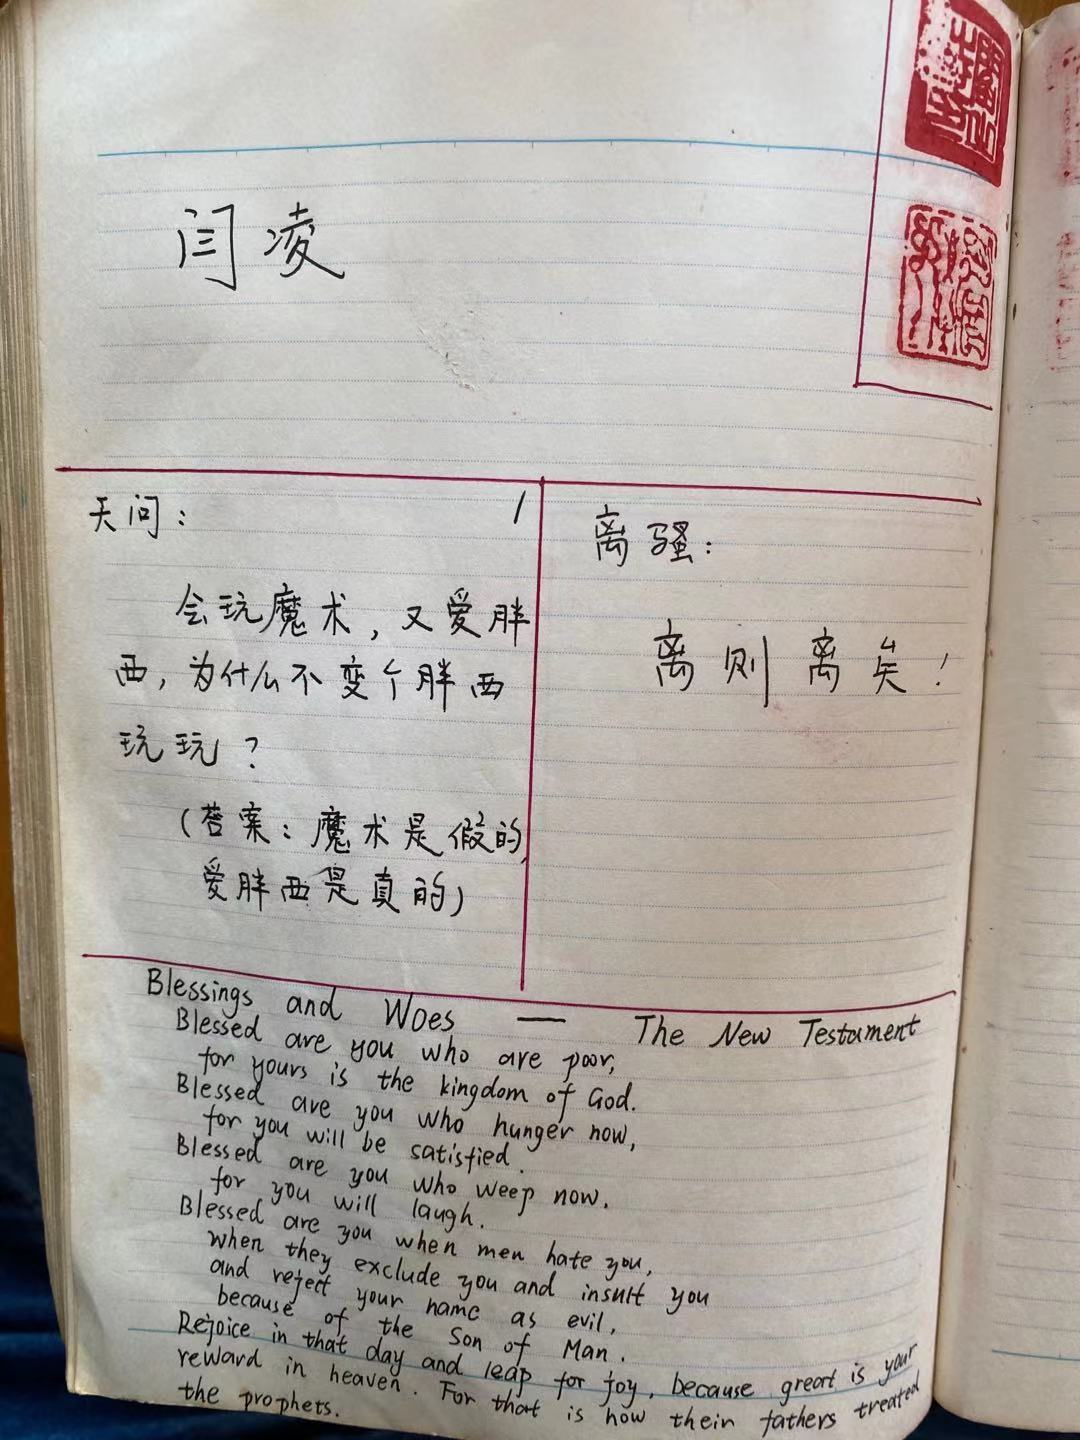 闫凌
天问：
会玩魔术，又爱胖
西，为什么不变个胖西
玩玩？
（答案：魔术是假的，
爱胖西是真的）
离骚：
离则离矣！
Blessings and Woes — The New Testament
Blessed are you who are poor,
for yours is the kingdom of God.
Blessed are you who hunger now,
for you will be satisfied.
Blessed are you who weep now.
for you will laugh.
Blessed are you when men hate you,
when they exclude you and insult you
and reject your name as evil,
because of the Son of Man.
Rejoice in that day and leap for joy, because great is your
reward in heaven. For that is how their fathers treated
the prophets.